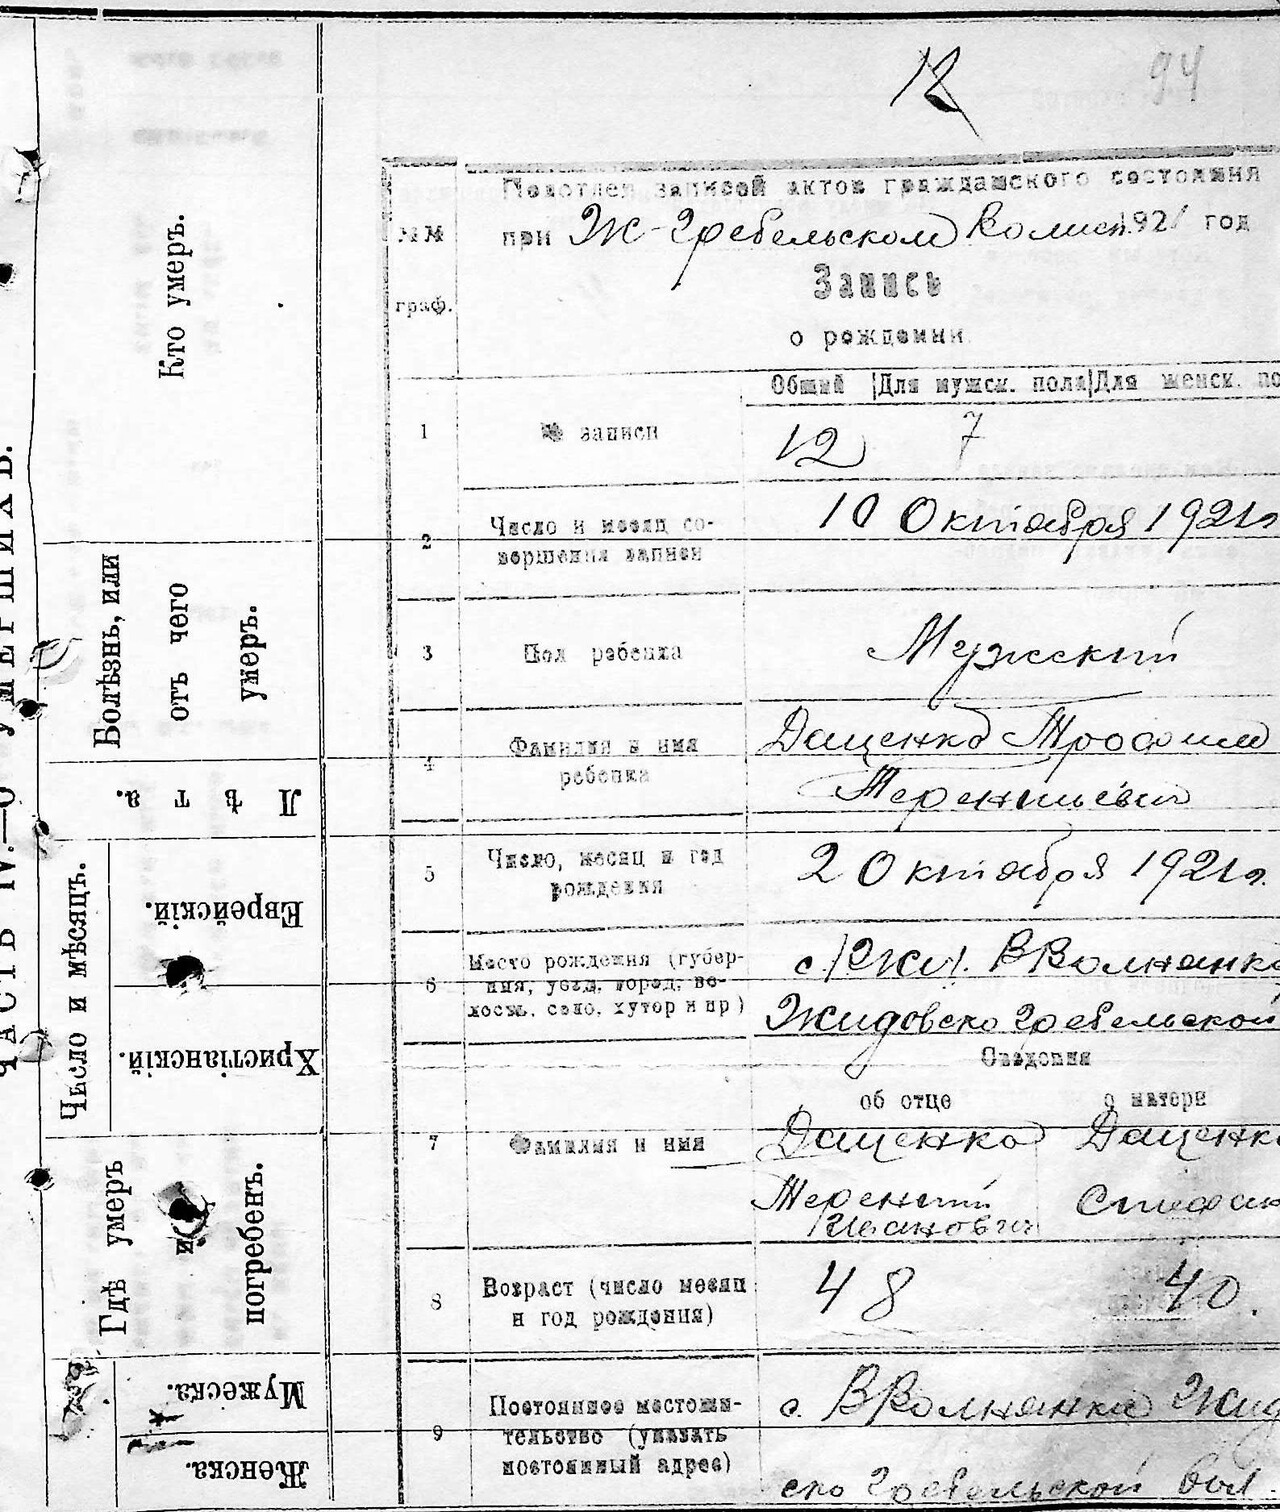 12 94
ЧАСТЬ IV.—О УМЕРШИХЪ.
Кто умеръ.
Болѣзнь, или
отъ чего
умеръ.
Лѣта.
Число и мѣсяцъ.
Еврейскій.
Христіанскій.
Гдѣ умеръ
и
погребенъ.
Мужеска.
Женска.
№№
граф.
Подотдел записей актов гражданского состояния
при Ж-Гребельском Волисп. 1921 год
Запись
о рождении
Общий Для мужск. пола Для женск. по
1 № записи 12 7
2 Число и месяц со-
вершения записи
10 Октября 1921г
3 Пол ребенка Мужский
4 Фамилия и имя
ребенка
Даценко Трофим
Терентиевич
5 Число, месяц и год
рождения
2 Октября 1921г.
6 Место рождения (губер-
ния, уезд, город, во-
лость, село, хутор и пр)
с. ВВолнянка
Жидовско Гребельской
Сведения
об отце о матери
7 Фамилия и имя Даценко Даценк
Терентий
Иванович
Стефан
8 Возраст (число месяц
и год рождения)
48 40.
9 Постоянное местожи-
тельство (указать
постоянный адрес)
с. ВВолнянка Жид
ско Гребельской вол